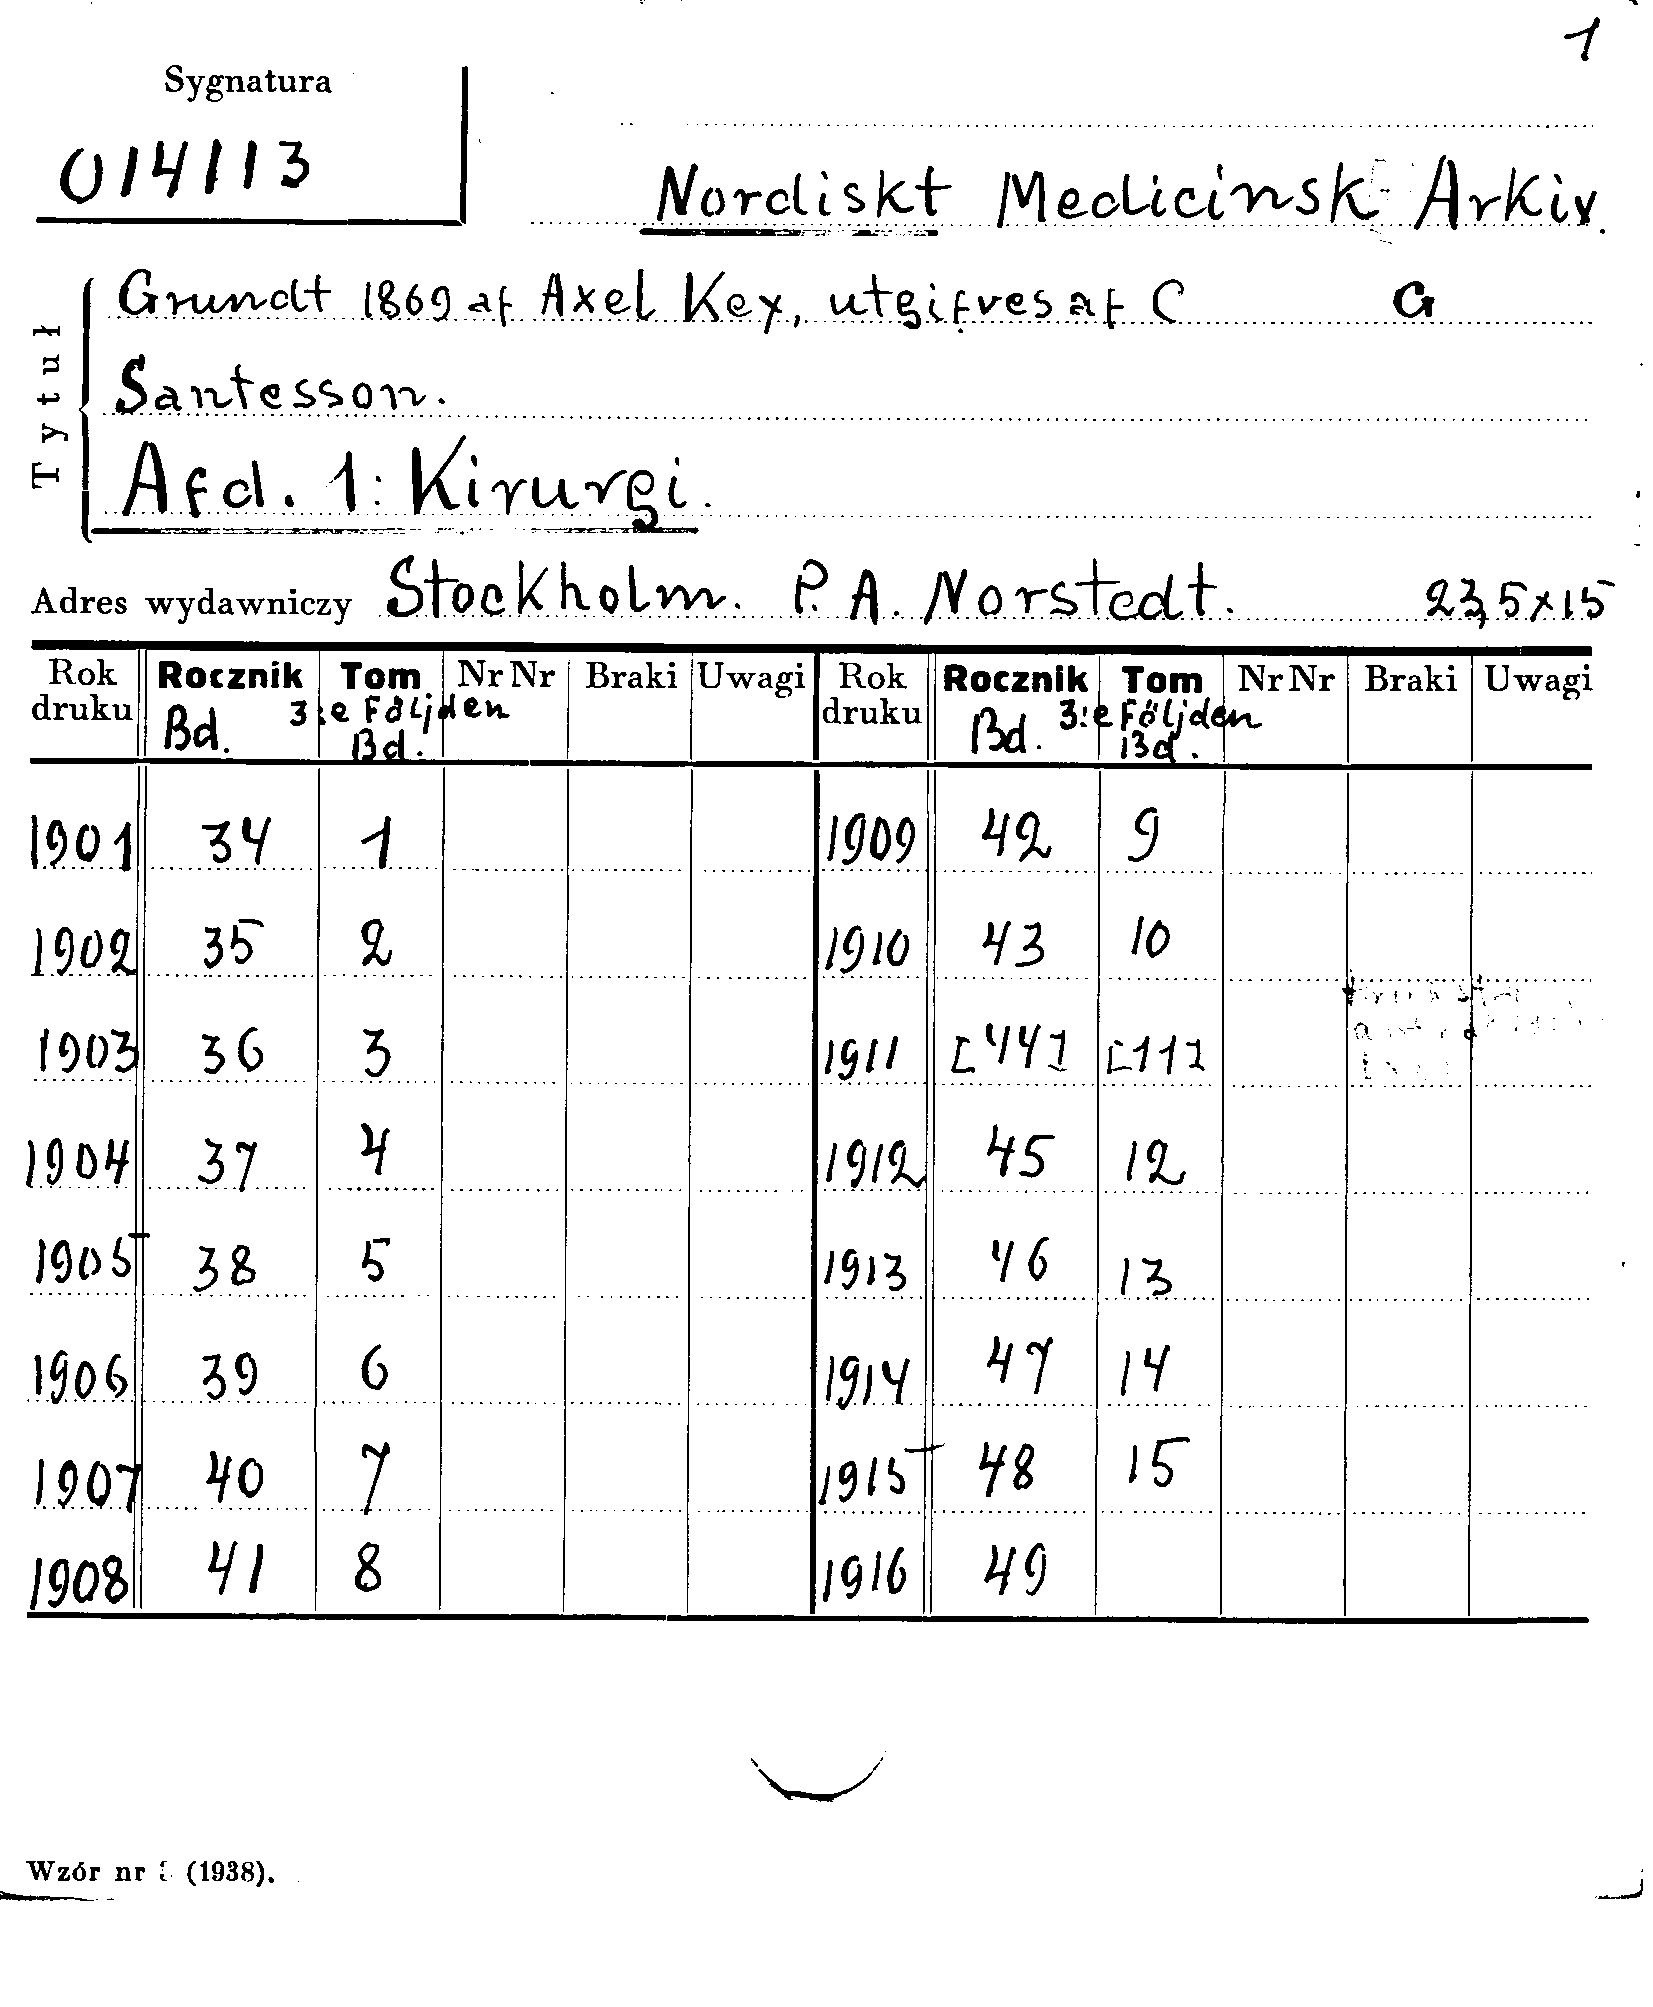 1
Sygnatura
014113
Nordiskt Medicinsk Arkiv.
Tytuł
Grundt 1869 af Axel Key, utgifves af C G
Santesson.
Afd. 1: Kirurgi.
Adres wydawniczy Stockholm. P. A. Norstedt. 23,5x15
Rok druku Rocznik Tom Nr Nr Braki Uwagi Rok druku Rocznik Tom Nr Nr Braki Uwagi
Bd. 3:e Följden Bd. Bd. 3:e Följden Bd.
1901 34 1 1909 42 9
1902 35 2 1910 43 10
1903 36 3 1911 [44] [11]
1904 37 4 1912 45 12
1905 38 5 1913 46 13
1906 39 6 1914 47 14
1907 40 7 1915 48 15
1908 41 8 1916 49
Wzór nr (1938).